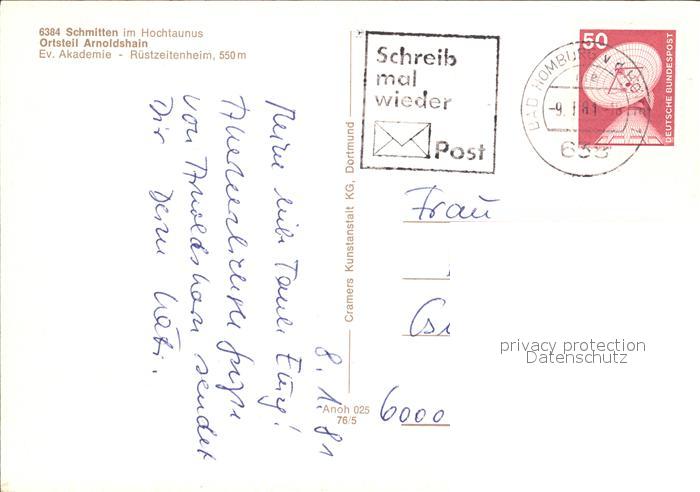 6384 Schmitten im Hochtaunus
Ortsteil Arnoldshain
Ev. Akademie - Rüstzeitenheim, 550 m
Schreib
mal
wieder
Post
BAD HOMBURG v d
-9.1.81
50
DEUTSCHE BUNDESPOST
Cramers Kunstanstalt KG, Dortmund
Anoh 025
76/5
8.1.81
Meine liebe Tante
von Arnoldshain sendet
Dir Deine Käti.
Frau
6000
privacy protection
Datenschutz